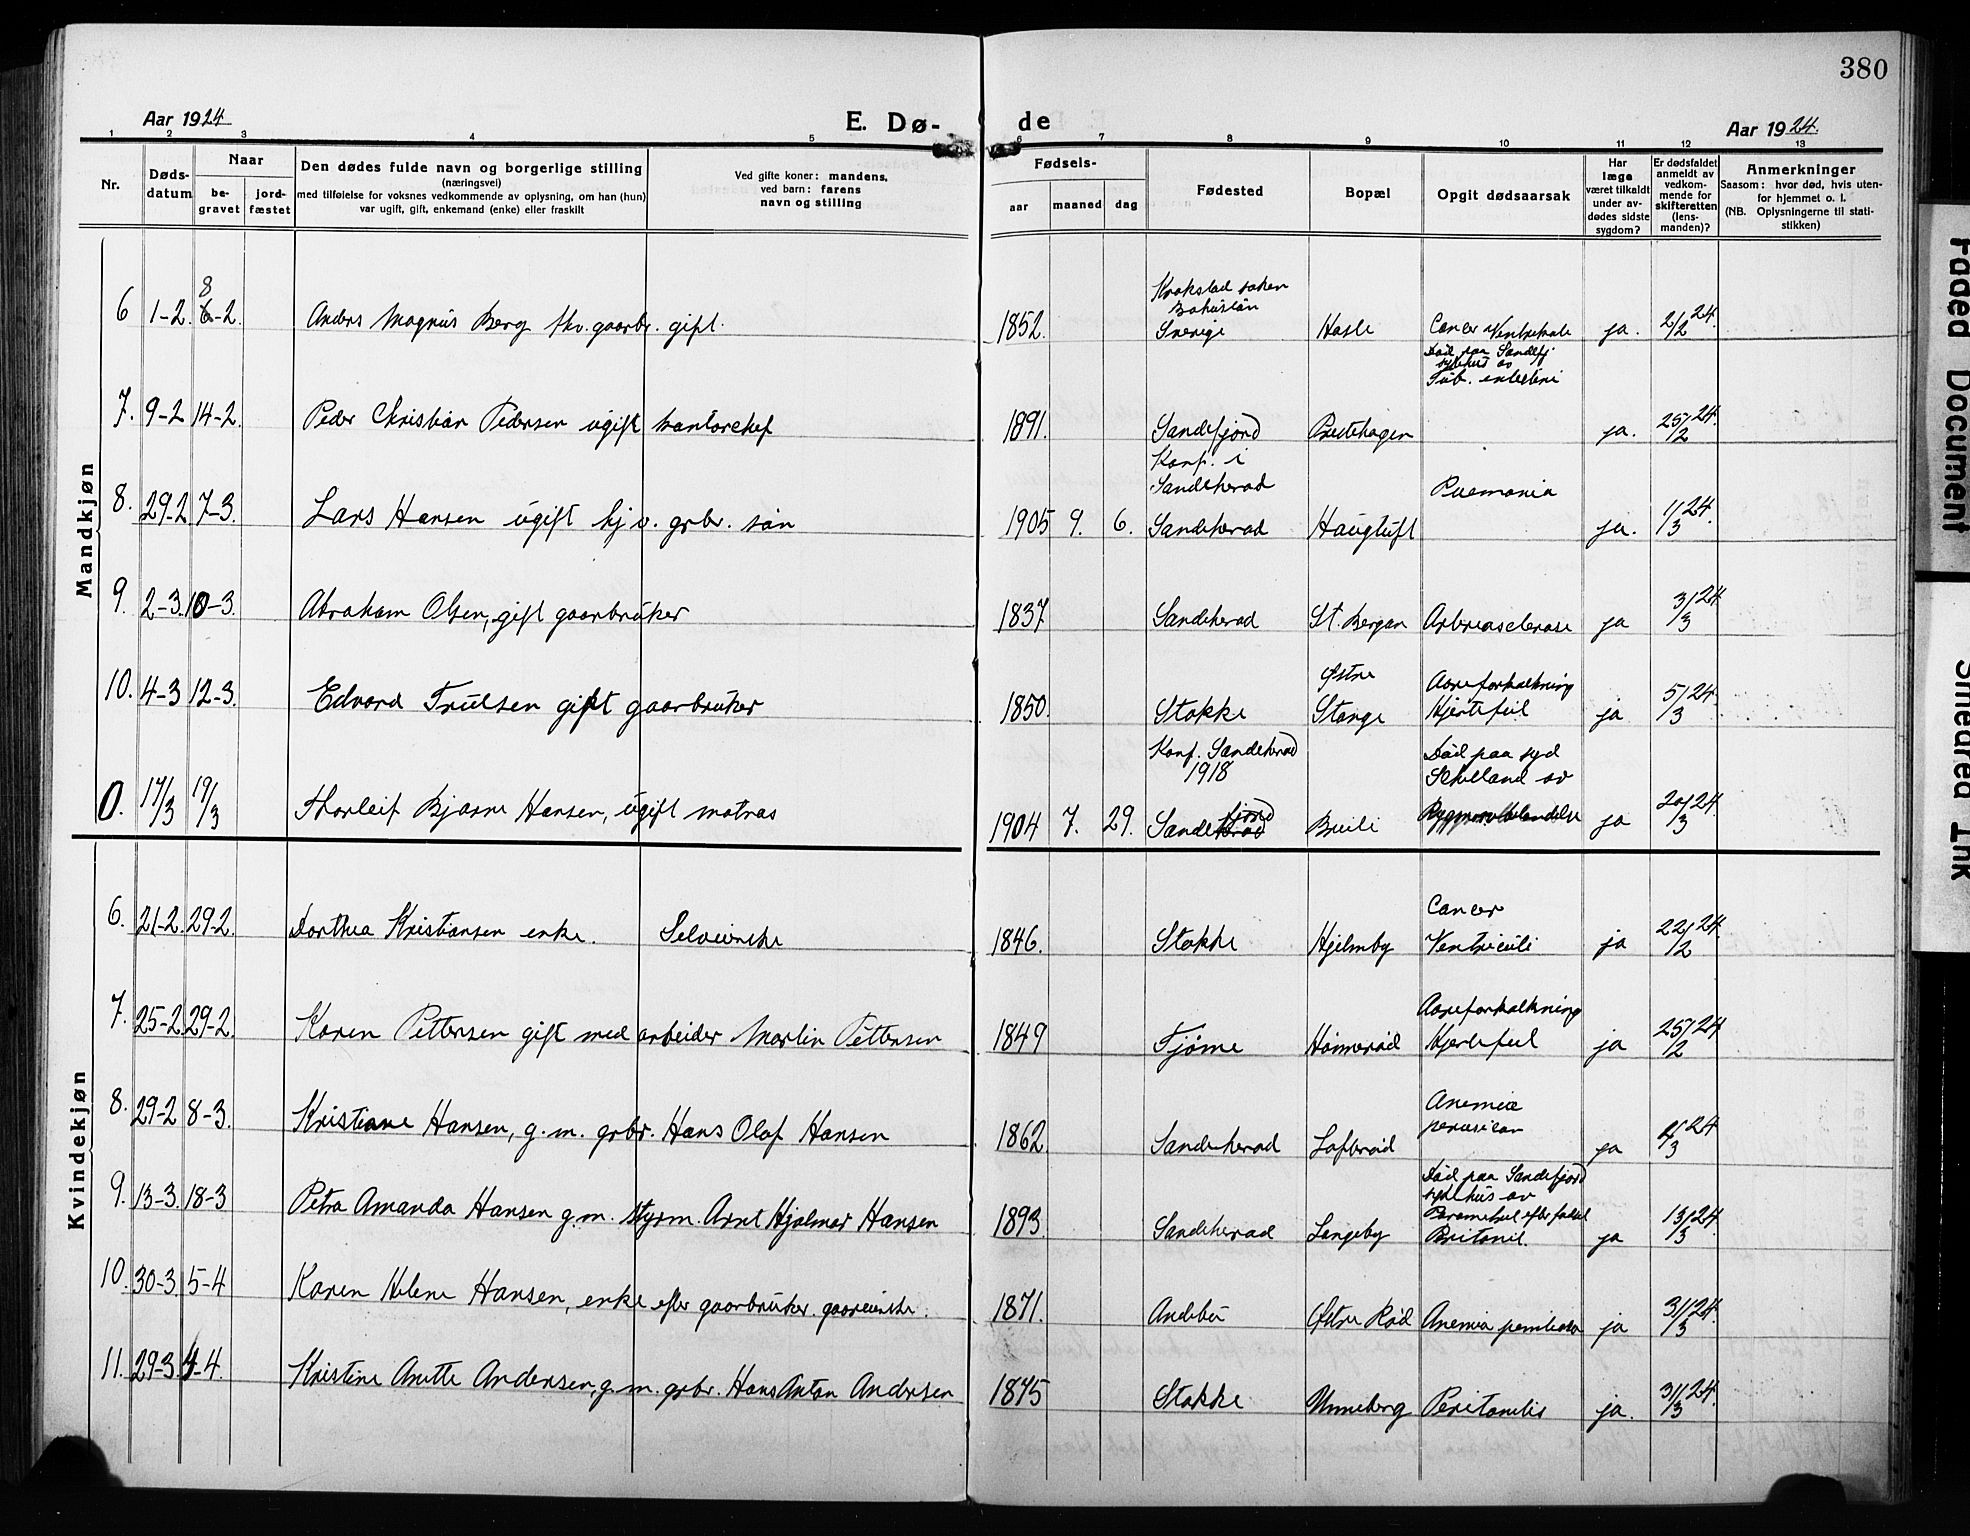 380
Aar 1924
E. Dø-
de
Aar 1924.
1 2 3 4 5 6 7 8 9 10 11 12 13
Nr.
Døds-
datum
Naar
be-
gravet
jord-
fæstet
Den dødes fulde navn og borgerlige stilling
(næringsvei)
med tilføielse for voksnes vedkommende av oplysning, om han (hun)
var ugift, gift, enkemand (enke) eller fraskilt
Ved gifte koner: mandens,
ved barn: farens
navn og stilling
Fødsels-
aar
maaned
dag
Fødested
Bopæl
Opgit dødsaarsak
Har
læge
været tilkaldt
under av-
dødes sidste
sygdom?
Er dødsfaldet
anmeldt av
vedkom-
mende for
skifteretten
(lens-
manden)?
Anmerkninger
Saasom: hvor død, hvis uten-
for hjemmet o. l.
(NB. Oplysningerne til stati-
stikken)
Mandkjøn
Krokstad soken
Bohuslän
6 1-2. 8-2. Anders Magnus Berg fhv. gaarbr. gift. 1852. Sverige Hasle Cancer Ventrikale ja. 2/2 24.
Död paa Sandefj
sykehus av
Tub. intestini
7. 9-2 14-2. Peder Christian Pedersen ugift kontorchef 1891. Sandefjord Prestehagen ja. 25/2 24.
Konf. i
Sandeherad
Pnemonia
8. 29-2 7-3. Lars Hansen ugift hj v. grbr. sön 1905 9. 6. Sandeherad Haugtuft ja. 1/3 24.
9. 2-3. 10-3. Abraham Olsen, gift gaarbruker 1837 Sandeherad St. Bergan Arterieosclerose ja 3/3 24
Østre Aareforkalkning
10. 4-3 12-3. Edvard Trulsen gift gaarbruker 1850. Stokke Stange Hjertefeil ja 5/3 24.
Konf. Sandeherad
1918
Död paa syd
Schetland av
0. 17/3 19/3 Thorleif Bjarne Hansen, ugift matros 1904 7. 29. Sandefjord Breili ja 20/3 24.
Kvindekjøn
Cancer
6. 21-2. 29-2. Dorthea Kristiansen enke. Selveierske 1846. Stokke Hjelmby Ventriculi ja 22/2 24.
Aareforkalkning
7. 25-2 29-2. Karen Pettersen gift med arbeider Martin Pettersen 1849 Tjöme Hönneröd Hjertefeil ja 25/2 24
Anemia
8. 29-2 8-3. Kristiane Hansen, g. m. grbr. Hans Olaf Hansen 1862. Sandeherad Lofteröd ja /3 24
Död paa Sandefjord
sykehus av
9. 13-3. 18-3 Petra Amanda Hansen g. m. styrm. Arnt Hjalmar Hansen 1893. Sandeherad Langeby Peritonit. ja 13/3 24.
10. 30-3. 5-4 Karen Helene Hansen, enke efter gaarbruker. gaareierske. 1871. Andebu Østre Röd Anemia ja 31/3 24.
11. 29-3. 4-4. Kristine Anette Andersen, g. m. grbr. Hans Anton Andersen 1875 Stokke Unneberg Peritonitis ja. 31/3 24.
Faded Document
Smeared Ink